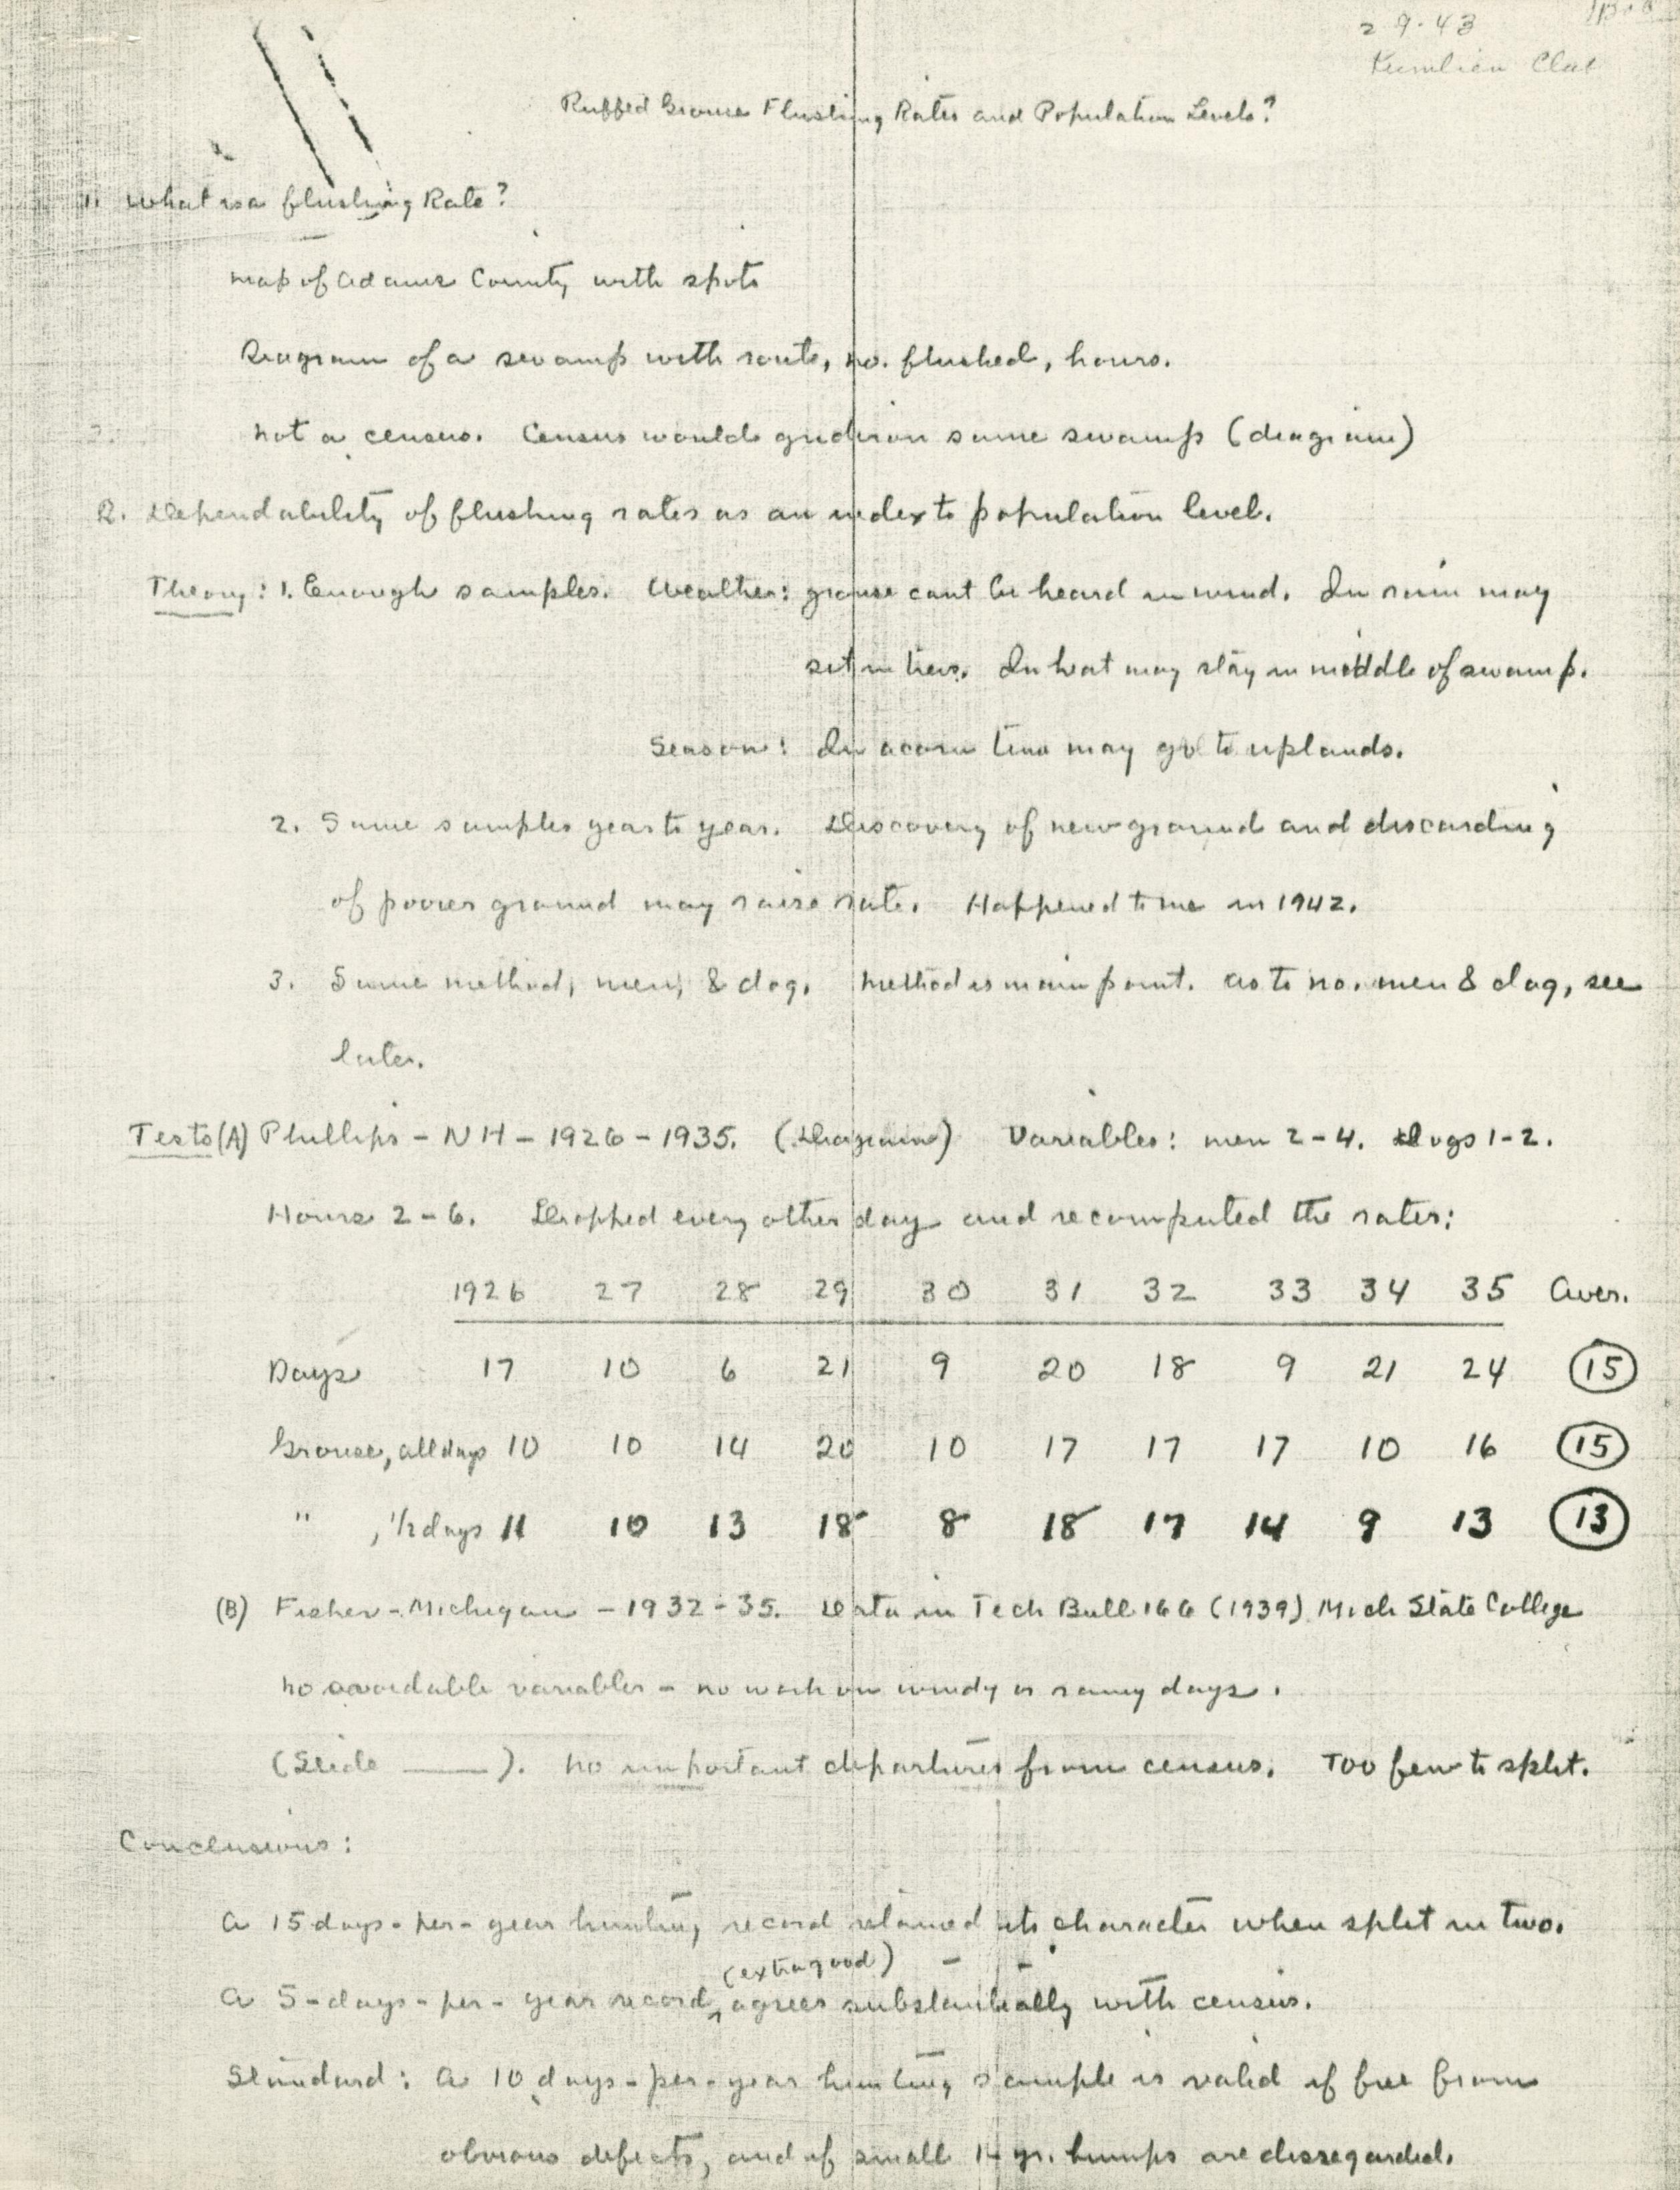 2 9·43
Kumlien Club
Ruffed Grouse Flushing Rates and Population Levels?
1. What is a flushing Rate?
Map of Adams County with spots
Diagram of a swamp with route, no. flushed, hours.
Not a census. Census would gridiron same swamp (diagram)
2. Dependability of flushing rates as an index to population level.
Theory: 1. Enough samples. Weather: grouse cant be heard in wind. In rain may
sit in trees. In heat may stay in middle of swamp.
Season: In acorn time may go to uplands.
2. Same samples year to year. Discovery of new ground and discarding
of poorer ground may raise rate. Happened to me in 1942.
3. Same method, men, & dog. Method is main point. As to no. men & dog, see
later.
Tests (A) Phillips - NH - 1926 - 1935. (Diagram) Variables: men 2-4. Dogs 1-2.
Hours 2-6. Dropped every other day and recomputed the rates:
1926 27 28 29 30 31 32 33 34 35 Aver.
Days 17 10 6 21 9 20 18 9 21 24 15
Grouse, all days 10 10 14 20 10 17 17 17 10 16 15
" , 1/2 days 11 10 13 18 8 18 17 14 9 13 13
(B) Fisher - Michigan - 1932-35. Data in Tech Bull 166 (1939) Mich State College
No avoidable variables - no work on windy or rainy days.
(Slide ——). No important departures from census. Too few to split.
Conclusions:
A 15 days-per-year hunting record retained its character when split in two.
(extra good)
A 5-days-per-year record, agrees substantially with census.
Standard: A 10 days-per-year hunting sample is valid if free from
obvious defects, and if small 1-yr. humps are disregarded.